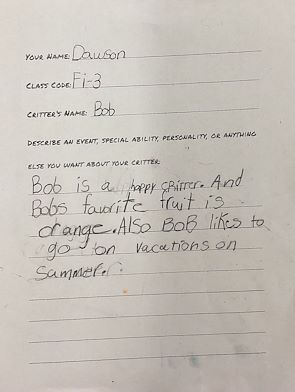 YOUR NAME: Dawson
CLASS CODE: Fi-3
CRITTER'S NAME: Bob
DESCRIBE AN EVENT, SPECIAL ABILITY, PERSONALITY, OR ANYTHING
ELSE YOU WANT ABOUT YOUR CRITTER:
Bob is a happy critter. And
Bobs favorite fruit is
orange. Also BOB likes to
go on vacations on
Summer.